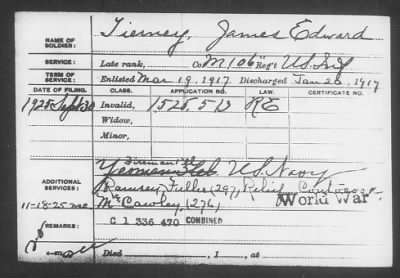 NAME OF SOLDIER: Tierney, James Edward
SERVICE: Late rank, Co M 106" Reg't U.S. Inf
TERM OF SERVICE: Enlisted Mar 19, 1917. Discharged Jan 26, 1917
DATE OF FILING. CLASS. APPLICATION NO. LAW. CERTIFICATE NO.
1925 Sept 30 Invalid, 1,525,513 RE
Widow,
Minor,
Fireman
Yeoman U.S. Navy
ADDITIONAL SERVICES: Ramsey, Fuller (297) Relief
11-18-25 McCawley (276) World War
REMARKS: C 1 336 470 COMBINED
Died , 1 , at